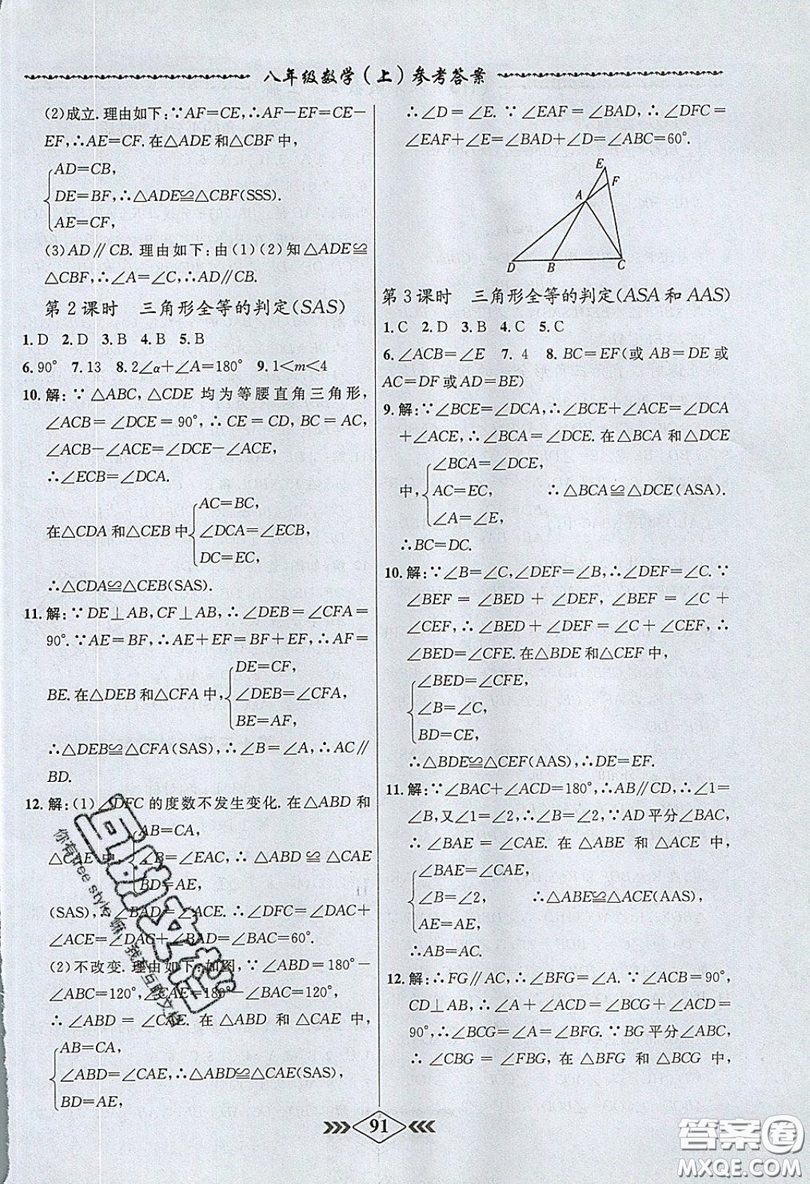 八年级数学(上)参考答案
(2)成立.理由如下:∵AF=CE,∴AF-EF=CE-
EF,∴AE=CF.在△ADE和△CBF中,
AD=CB,
DE=BF,∴△ADE≌△CBF(SSS).
AE=CF,
(3)AD∥CB.理由如下:由(1)(2)知△ADE≌
△CBF,∴∠A=∠C,∴AD∥CB.
第2课时 三角形全等的判定(SAS)
1.D 2.D 3.B 4.B 5.B
6.90° 7.13 8.2∠α+∠A=180° 9.1<m<4
10.解:∵△ABC,△CDE均为等腰直角三角形,
∠ACB=∠DCE=90°,∴CE=CD,BC=AC,
∴∠ACB-∠ACE=∠DCE-∠ACE,
∴∠ECB=∠DCA.
AC=BC,
在△CDA和△CEB中 ∠DCA=∠ECB,
DC=EC,
∴△CDA≌△CEB(SAS).
11.解:∵DE⊥AB,CF⊥AB,∴∠DEB=∠CFA=
90°.∵AE=BF,∴AE+EF=BF+EF,∴AF=
DE=CF,
BE.在△DEB和△CFA中, ∠DEB=∠CFA,
BE=AF,
∴△DEB≌△CFA(SAS),∴∠B=∠A,∴AC∥
BD.
12.解:(1)∠DFC的度数不发生变化.在△ABD和
BA=CA,
△CAE中 ∠B=∠EAC,∴△ABD≌△CAE
BD=AE,
(SAS),∴∠BAD=∠ACE.∴∠DFC=∠DAC+
∠ACE=∠DAC+∠BAD=∠BAC=60°.
(2)不改变.理由如下:如图,∠ABD=180°-
∠ABC=120°,∠CAE=180°-∠BAC=120°,
∴∠ABD=∠CAE.在△ABD和△CAE中,
AB=CA,
∠ABD=∠CAE,∴△ABD≌△CAE(SAS).
BD=AE,
∴∠D=∠E.∵∠EAF=∠BAD,∴∠DFC=
∠EAF+∠E=∠BAD+∠D=∠ABC=60°.
E
F
A
D B C
第3课时 三角形全等的判定(ASA和AAS)
1.C 2.D 3.B 4.C 5.C
6.∠ACB=∠E 7.4 8.BC=EF(或AB=DE或
AC=DF或AD=BE)
9.解:∵∠BCE=∠DCA,∴∠BCE+∠ACE=∠DCA
+∠ACE,∴∠BCA=∠DCE.在△BCA和△DCE
∠BCA=∠DCE,
中, AC=EC, ∴△BCA≌△DCE(ASA).
∠A=∠E,
∴BC=DC.
10.解:∵∠B=∠C,∠DEF=∠B,∴∠DEF=∠C.∵
∠BEF=∠BED+∠DEF,∠BEF=∠C+
∠CEF,∴∠BED+∠DEF=∠C+∠CEF,
∴∠BED=∠CFE.在△BDE和△CEF中,
∠BED=∠CFE,
∠B=∠C,
BD=CE,
∴△BDE≌△CEF(AAS),∴DE=EF.
11.解:∵∠BAC+∠ACD=180°,∴AB∥CD,∴∠1=
∠B,又∠1=∠2,∴∠B=∠2.∵AD平分∠BAC,
∴∠BAE=∠CAE.在△ABE和△ACE中,
∠BAE=∠CAE,
∠B=∠2, ∴△ABE≌△ACE(AAS),
AE=AE,
∴AB=AC.
12.解:∴FG∥AC,∴∠BFG=∠A.∵∠ACB=90°,
CD⊥AB,∴∠A+∠ACD=∠BCG+∠ACD=
90°,∴∠BCG=∠A=∠BFG.∵BG平分∠ABC,
∴∠CBG=∠FBG,在△BFG和△BCG中,
91
答案圈
MXQE.COM